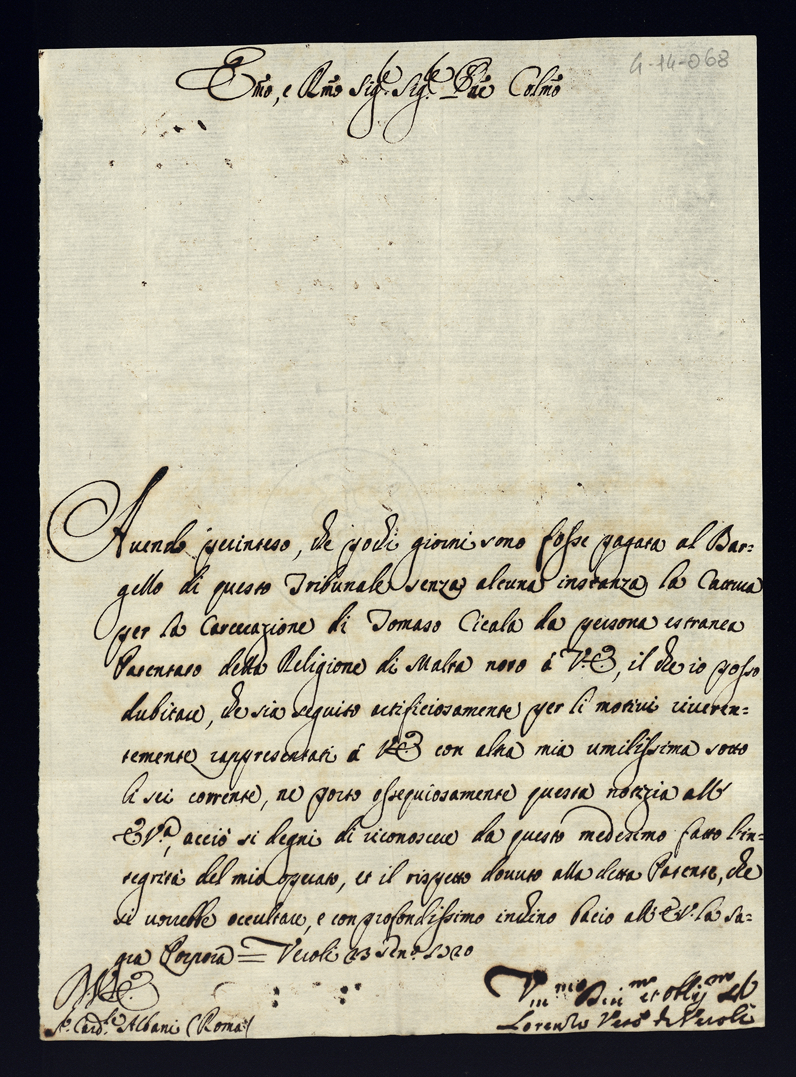 G-14-068
Emo, e Rmo Sigre, Sigre Pne Colmo
Avendo preinteso, che pochi giorni sono fosse pagata al Bar=
gello di questo Tribunale senza alcuna instanza la Cattura
per la Carcerazione di Tomaso Cicala da persona estranea
Patentato della Religione di Malta noto á V.E., il che io posso
dubitare, che sia seguito artificiosamente per li motivi riveren=
temente rappresentati á V.E. con altra mia umilissima sotto
li sei corrente, ne porto ossequiosamente questa notizia all'
E.Va, acciò si degni di riconoscere da questo medesimo fatto l'in=
tegrità del mio operato, et il rispetto dovuto alla detta Patente, che
si vorrebbe occultare, e con profondissimo inchino bacio all'E.V. la Sa=
gra Porpora = Veroli 23 1720
Sr. Cardle Albani (Roma)
Vmo Devmo et oblijmo
Lorenzo Vesco di Veroli